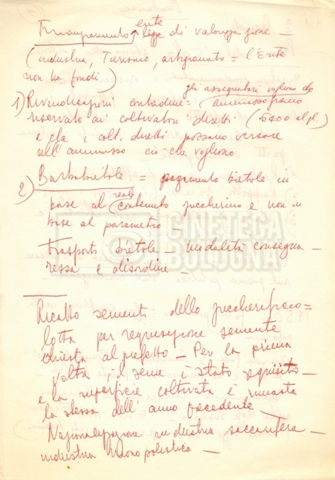 ente
Finanziamento legge di valorizzazione –
(industria, Turismo, artigianato = l'Ente
non ha fondi)
gli assegnatari vogliono
1) Rivendicazioni contadine =
riservato ai coltivatori diretti (5400 al ql.)
e che i colt. diretti possano versare
all'ammasso ciò che vogliono
2) Barbabietole = pagamento bietole in
reale
base al contenuto zuccherino e non in
base al parametro –
Trasporti bietole – modalità consegna
ressa e disordine –
CINETECA
BOLOGNA
Ricatto sementi dello zuccherificio –
lotta per sementi
chiesta al prefetto – Per la prima
volta il seme è stato
e la superficie coltivata è rimasta
la stessa dell'anno precedente
Nazionalizzazione industria saccarifera –
industria monopolistica –